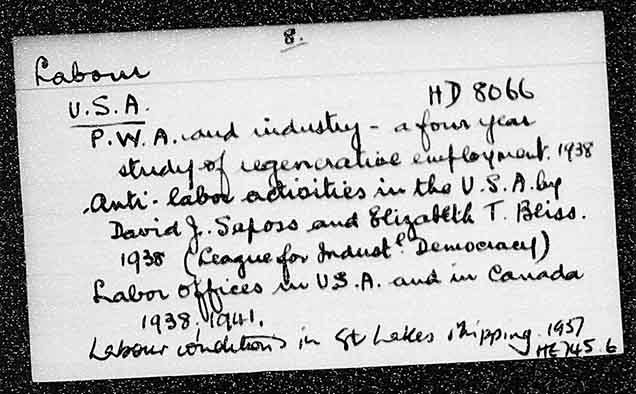 8.
Labour
U.S.A.
HD 8066
P.W.A. and industry - a four year
study of regenerative employment. 1938
Anti-labor activities in the U.S.A. by
David J. Saposs and Elizabeth T. Bliss.
1938 (League for Industl Democracy)
Labor offices in U.S.A. and in Canada
1938, 1941.
Labour conditions in Gt Lakes shipping. 1957
HE 745.6